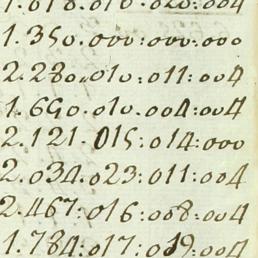 1.618.016:020:004
1.350.000:000.000
2.280.010:011:004
1.690.010.004:004
2.121.015:014:000
2.034.023:011:004
2.467:016:008:004
1.784:017:019:004